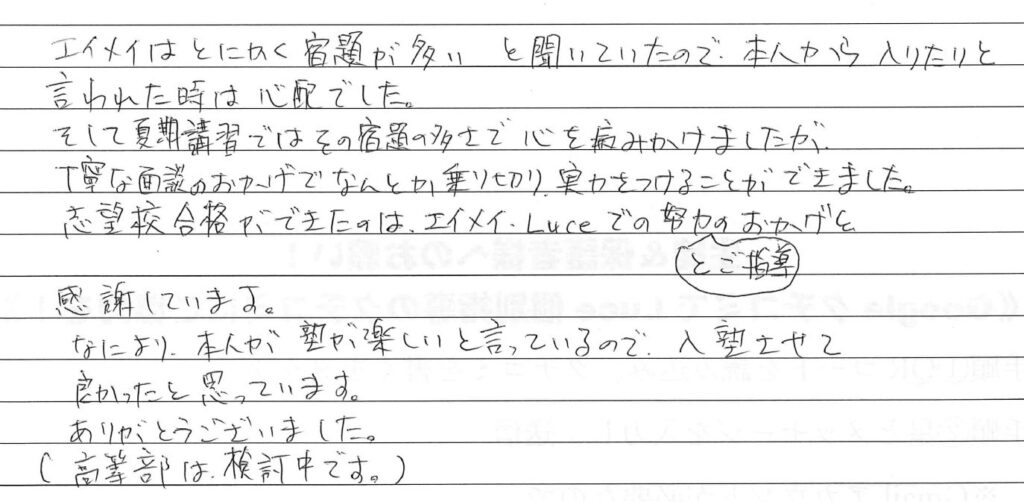 エイメイはとにかく宿題が多い と聞いていたので、本人から入りたいと
言われた時は心配でした。
そして夏期講習ではその宿題の多さで心を病みかけましたが、
丁寧な面談のおかげでなんとか乗り切り、実力をつけることができました。
志望校合格ができたのは、エイメイ・Luceでの努力のおかげと
とご指導
感謝しています。
なにより、本人が塾が楽しいと言っているので、入塾させて
良かったと思っています。
ありがとうございました。
(高等部は、検討中です。)